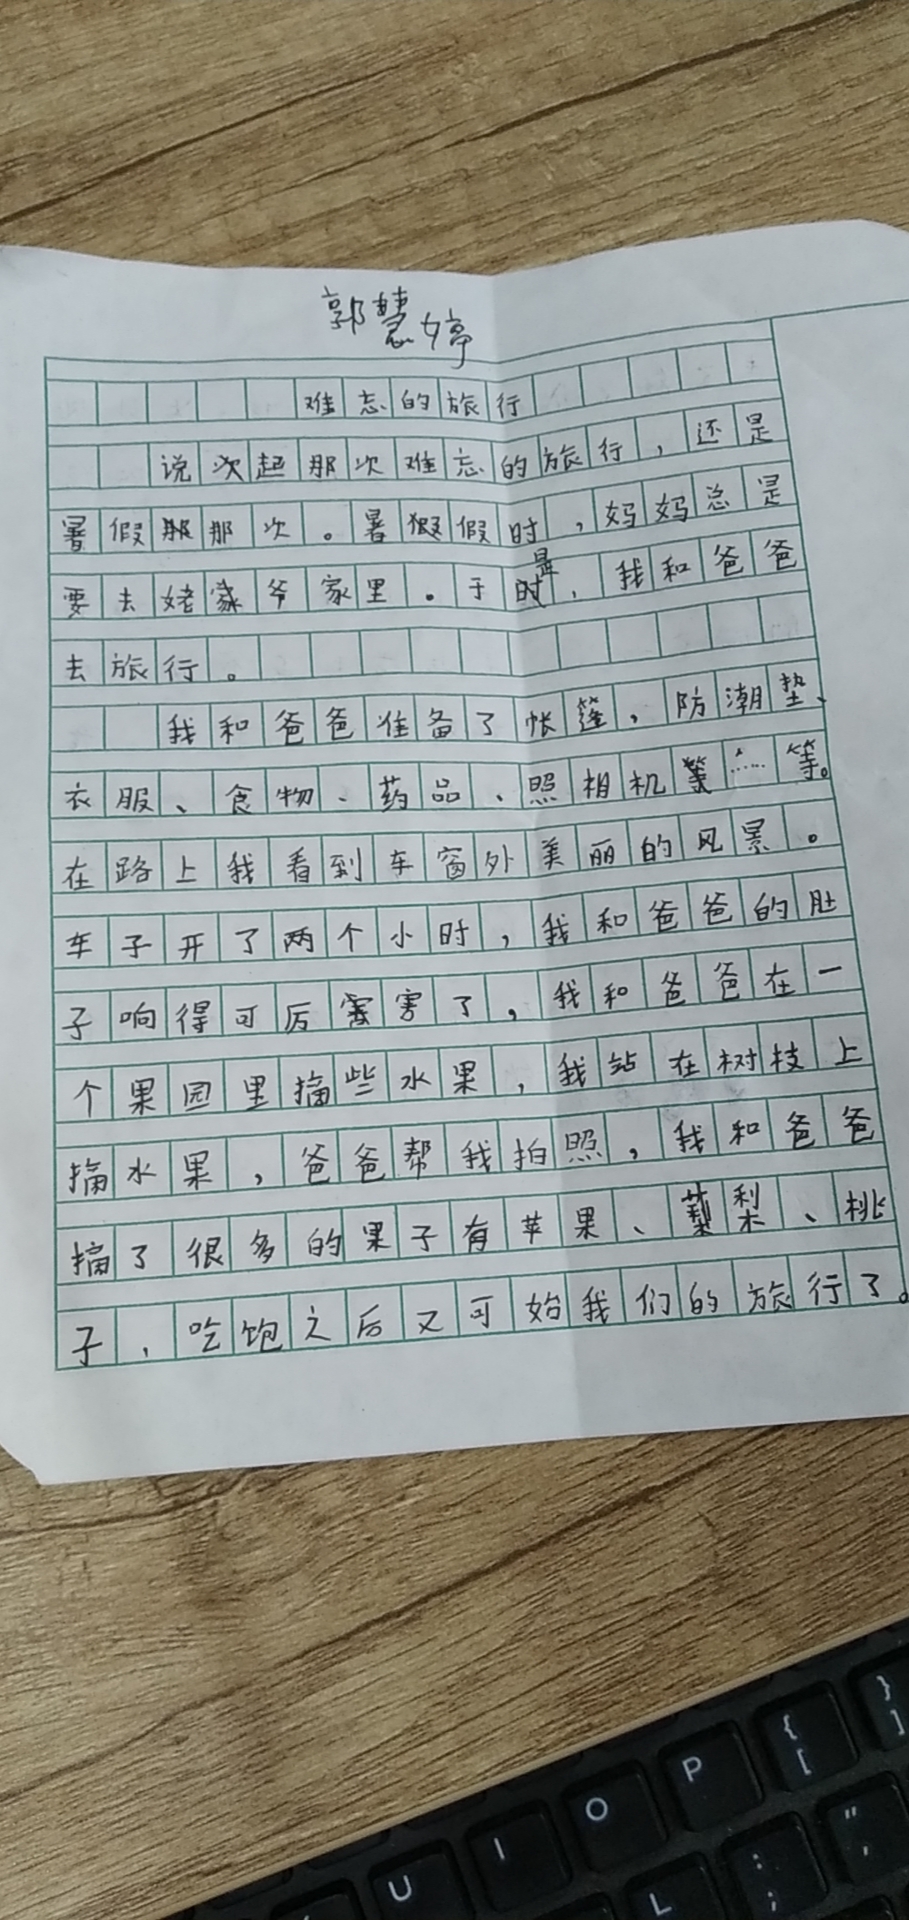 郭慧婷
难忘的旅行
说次起那次难忘的旅行，还是
暑假那那次。暑假假时，妈妈总是
是
要去姥家爷家里。于时，我和爸爸
去旅行。
我和爸爸准备了帐篷，防潮垫、
衣服、食物、药品、照相机等……等。
在路上我看到车窗外美丽的风景。
车子开了两个小时，我和爸爸的肚
子响得可厉害害了，我和爸爸在一
个果园里摘些水果，我站在树枝上
摘水果，爸爸帮我拍照，我和爸爸
摘了很多的果子有苹果、梨、桃
子，吃饱之后又可始我们的旅行了。
{ [
} ]
P
O
I
U
L
: ;
" ,